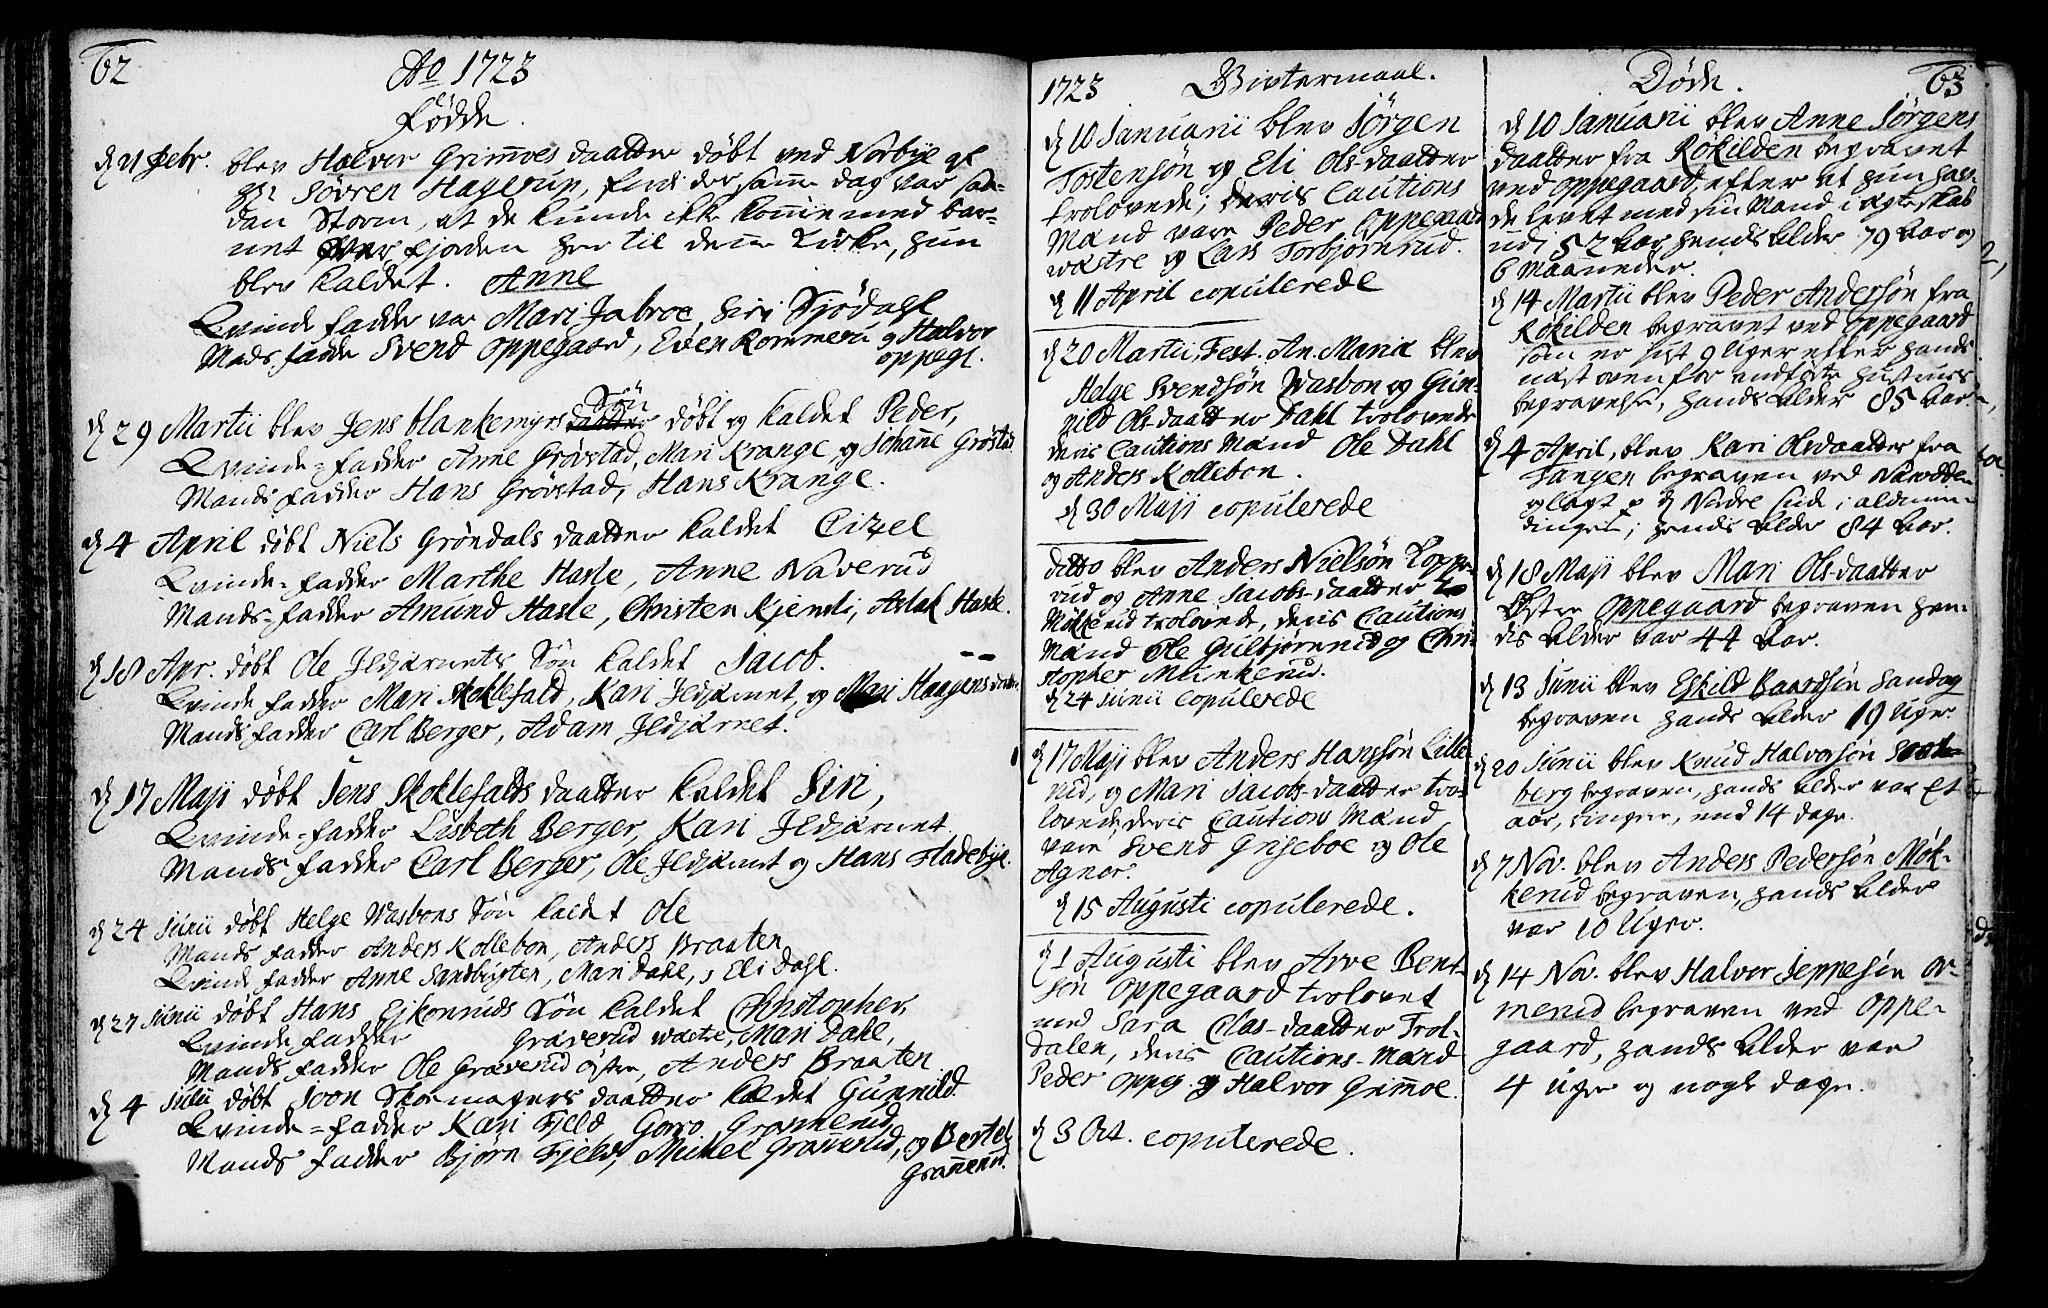 62
Ao 1723
Fødde.
d 21 Febr. blev Halvor Grimoes daatter døbt ved Nørbye af
Hr Søvren Hagerup, fordi der samme dag var saa-
dan Storm, at de kunde ikke komme med bar-
net over fjorden her til denne Kirke, hun
blev kaldet. Anne
Qvinde fadder var Mari Jabroe, Siri Sjødahl
Mands fadde Svend Oppegaard, Even Kommeru og Halvor
oppeg.
Søn
d 29 Martii blev Jens blankemyrs daatter døbt og kaldet Peder,
Qvinde-fadder Anne Grøstad, Mari Krange, og Johanne Grøstad
Mands fadder Hans Grøstad, Hans Krange.
d 4 April døbt Niels Grøndals daatter kaldet Cizel
Qvinde-fadder Marthe Hasle, Anne Naverud
Mands-fadder Amund Hasle, Christen Kjendli, Aslak Hasle.
d 18 Apr. døbt Ole Ildjarnets Søn kaldet Jacob.
Qvinde fadder Mari Skoklefald, Kari Ildjarnet, og Mari Haagens
Mands fadder Carl Berger, Adam Ildjarnet.
d 17 Maji døbt Jens Skoklefalds daatter kaldet Siri,
Qvinde-fadder Lisbeth Berger, Kari Ildjarnet
Mands-fadder Carl Berger, Ole Ildjarnet og Hans Fladebye.
d 24 Junii døbt Helge Wasbons Søn kaldet Ole
Mands fadder Anders Kollebon, Anders Braaten
Qvinde fadder Anne Sandbugten, Mari Dahl, Eli Dahl.
d 27 Junii døbt Hans Ejkonruds Søn kaldet Christopher,
Qvinde fadder Graverud wæstre, Mari Dahl,
Mands fadder Ole Graverud østre, Anders Braaten
d 4 Julii døbt Joon Skomagers daatter kaldet Gunnild.
Qvinde-fadder Kari Fjeld, Gorro Granerud
Mands fadder Bjørn Fjeld, Mickel Graverud, og Bertel
Granerud.
1723 Givtermaal.
d 10 Januarii blev Jørgen
Tostensøn og Eli Ols-daatter
trolovede; deris Cautions
Mænd vare Peder Oppegaard
wæstre og Lars Torbjørnrud.
d 11 April copulerede
d 20 Martii, Fest. An. Mariæ blev
Helge Svendsøn Wasbon og Gun-
nild Ols-daatter Dahl trolovede
deris Cautions Mænd Ole Dahl
og Anders Kollebon.
d 30 Maji copulerede
ditto blev Anders Nielsøn Toppe-
rud og Anne Jacobs-daatter
Møkkerud trolovede, deris Cautions
Mænd Ole Gulbjørnrud og Chri-
stopher Munkerud.
d 24 Junii copulerede
d 17 Maji blev Anders Hanssøn Lille-
rud, og Mari Jacobs-daatter tro-
lovede, deris Caution Mænd
vare Svend Griseboe og Ole
Agnor.
d 15 Augusti copulerede.
d 1 Augusti blev Arve Bent-
søn Oppegaard trolovet
med Sara Clas-daatter Trol-
dalen, deris Cautions-Mænd
Peder Oppeg. og Halvor Grimoe.
d 3 Oct. copulerede.
Døde.
63
d 10 Januarii blev Anne Jørgens
daatter fra Røkilden begravet
ved Oppegaard, efter at hun hav-
de levet med sin Mand i ægteskab
udi 52 Aar, hends Alder 79 Aar og
6 Maaneder.
d 14 Martii blev Peder Andersøn fra
Røkilden begravet ved Oppegaard
som er just 9 Uger efter hands
næst ovenfor indførte hustrues
begravelse, hands Alder 85 Aar
d 4 April, blev Kari Olsdaatter fra
Tangen begraven ved Næsodden
oglagt p d Nædre side i aldmin-
dingen; hends Alder 84 Aar.
d 18 Maji blev Mari Ols-daatter
Østre Oppegaard begraven hen-
dis Alder var 44 Aar.
d 13 Junii blev Eskild Baardsøn Sandog
begraven hands Alder 19 Uger.
d 20 Junii blev Knud Halvorsøn
berg begraven, hands Alder var Et
aar, ringer, end 14 dage.
d 7 Nov. blev Anders Pedersøn Møk-
kerud begraven, hands Alder
var 10 Uger.
d 14 Nov. blev Halvor Jeppesøn Or-
merud begraven ved Oppe-
gaard, hands Alder var
4 uger og nogle dage.